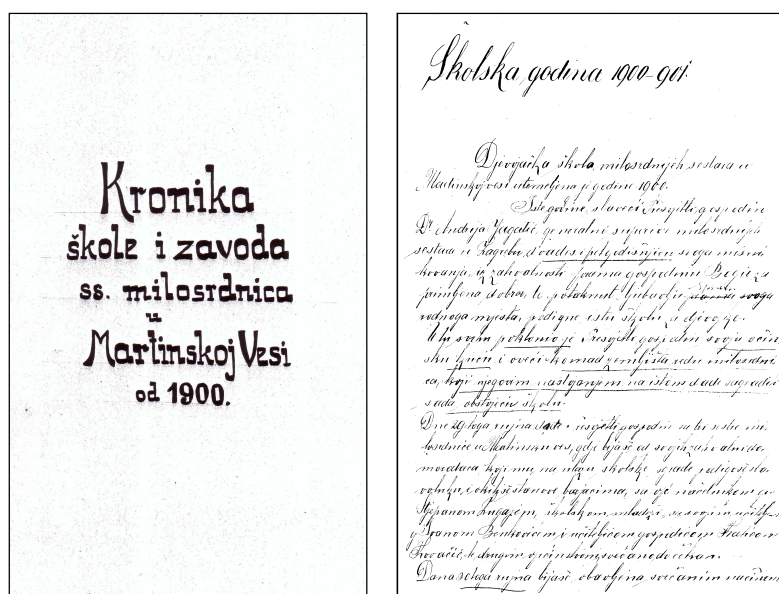 Kronika
škole i zavoda
ss. milosrdnica
u
Martinskoj Vesi
od 1900.
Školska godina 1900-901.
Djevojačka škola milosrdnih sestara u
Martinskoj vesi utemeljena je godine 1900.
Iste godine, slaveći Presvjetli gospodin
Dr Andrija Jagatić generalni superior milosrdnih
sestara u Zagrebu, dvadesetpetgodišnjicu svoga misni
kovanja, iz zahvalnosti prama gospodinu Bogu za
primljena dobra, te potaknut ljubavlju svoga
rodnoga mjesta, podigne istu školu za djevojke.
U tu svrhu poklonio je Presvjetli gospodin svoju očin
sku kuću i oveći komad zemljišta redu milosrdni
ca, koji njegovim nastojanjem na istom dade sagraditi
sada obstojeću školu.
Dne 29 toga rujna presvjetli gospodin sestre mi
losrdnice u Martinsku ves, gdje bijaše od svojih
koji mu na ulazu školske zgrade
i okićše stanove sa načelnikom
Stjepanom školskom mladeži, sa svojim
Ivanom Benkovićem i učiteljicom gospodjicom
Kovačić, te drugim svečano dočekan.
Dana toga rujna bijaše obavljena svečanim načinom